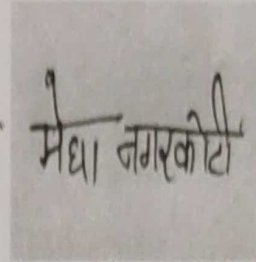 मेधा नगरकोटी